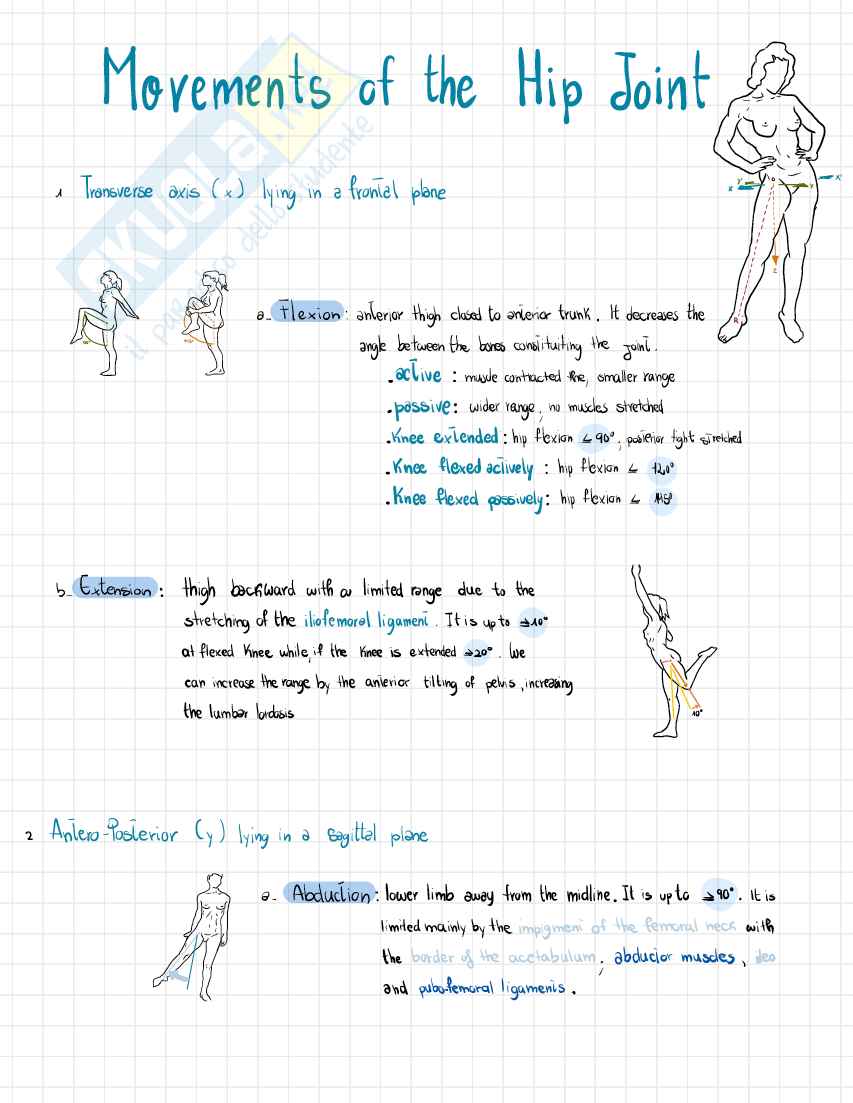 Movements of the Hip Joint
SKUOLA.net
il paradiso dello studente
1 Transverse axis (x) lying in a frontal plane
a_ Flexion: anterior thigh closed to anterior trunk. It decreases the
angle between the bones constituiting the joint.
.active : muscle contracted the, smaller range
.passive: wider range, no muscles stretched
.Knee extended: hip flexion ≤ 90°, posterior tight stretched
.Knee flexed actively : hip flexion ≤ 120°
.Knee flexed passively: hip flexion ≤ 145°
b_ Extension: thigh backward with a limited range due to the
stretching of the iliofemoral ligament. It is up to → 10°
at flexed knee while, if the knee is extended → 20°. We
can increase the range by the anterior tilting of pelvis, increasing
the lumbar lordosis
10°
2 Antero-Posterior (y) lying in a sagittal plane
a_ Abduction: lower limb away from the midline. It is up to → 90°. It is
limited mainly by the impigment of the femoral neck with
the border of the acetabulum, abductor muscles, ileo
and pubo-femoral ligaments.